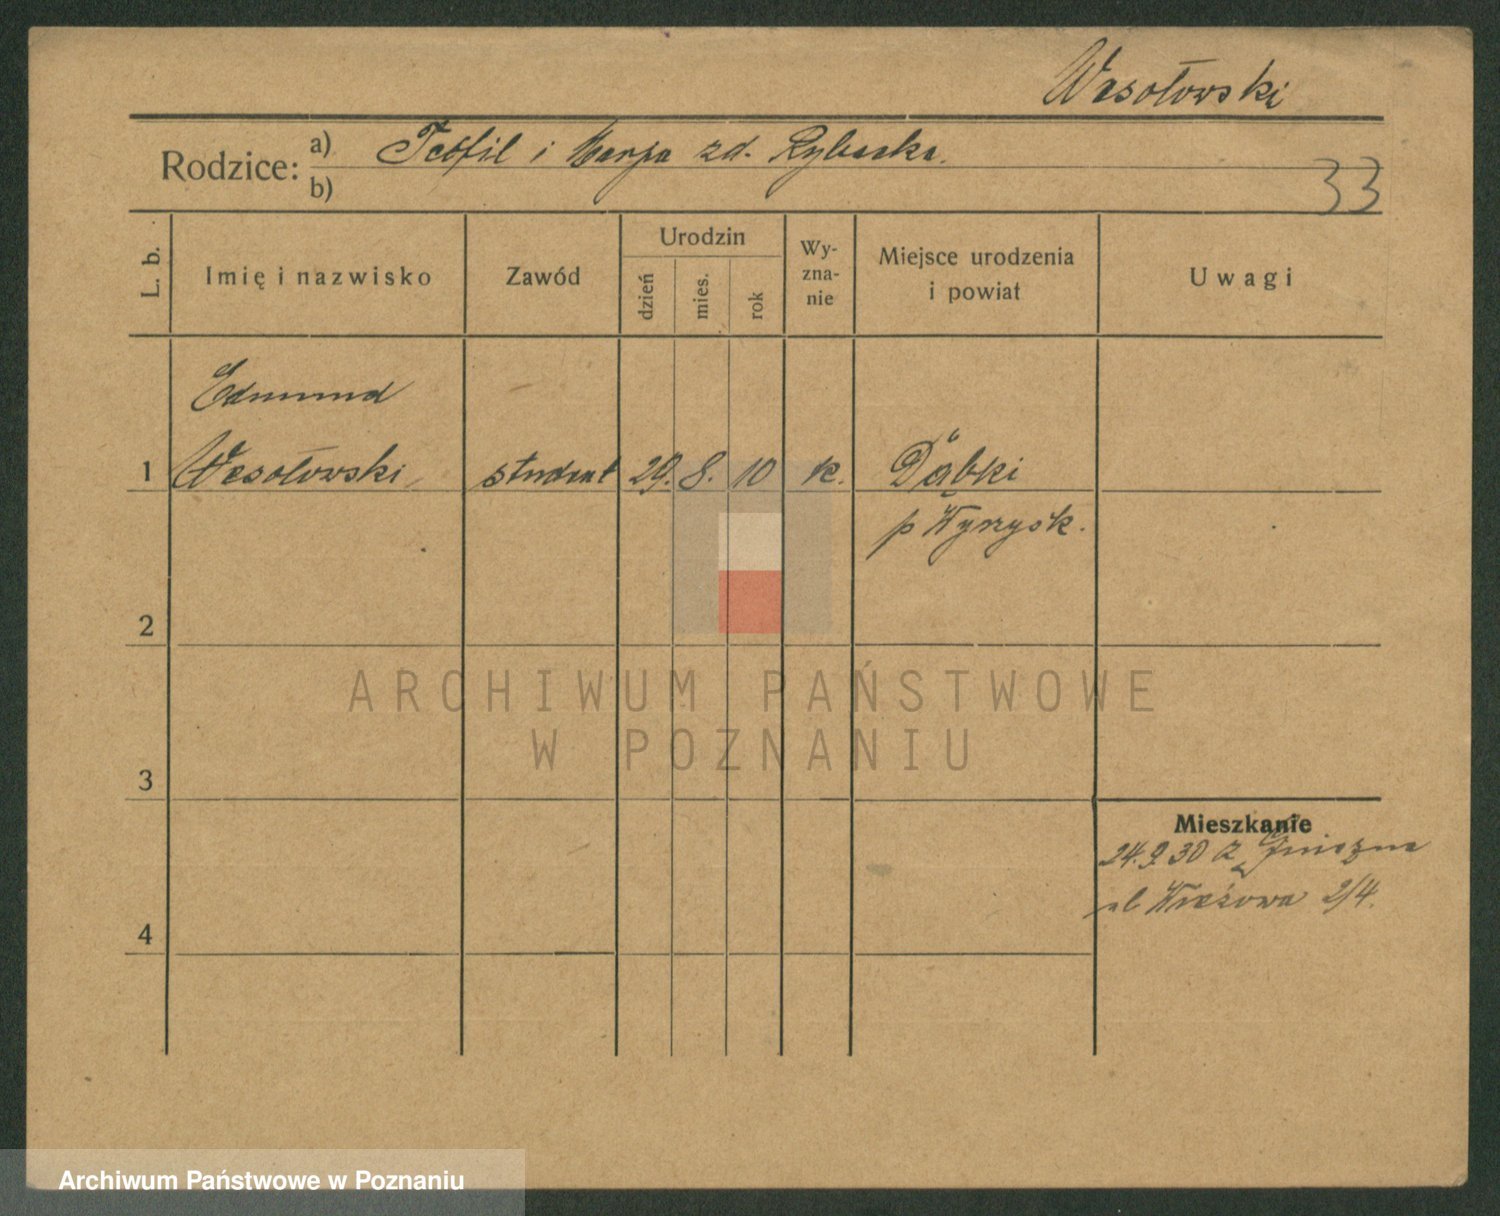 Wesołowski
Rodzice: a) Teofil i Marja zd. Rybacka.
b)
33
L. b.
Imię i nazwisko
Zawód
Urodzin
dzień
mies.
rok
Wy-
zna-
nie
Miejsce urodzenia
i powiat
Uwagi
Edmund
1 Wesołowski student 29. 8. 10 k. Dąbki
p Wyrzysk.
2
ARCHIWUM PAŃSTWOWE
W POZNANIU
3
Mieszkanie
24.9.30 z Gniezna
ul Wieżowa 2/4.
4
Archiwum Państwowe w Poznaniu